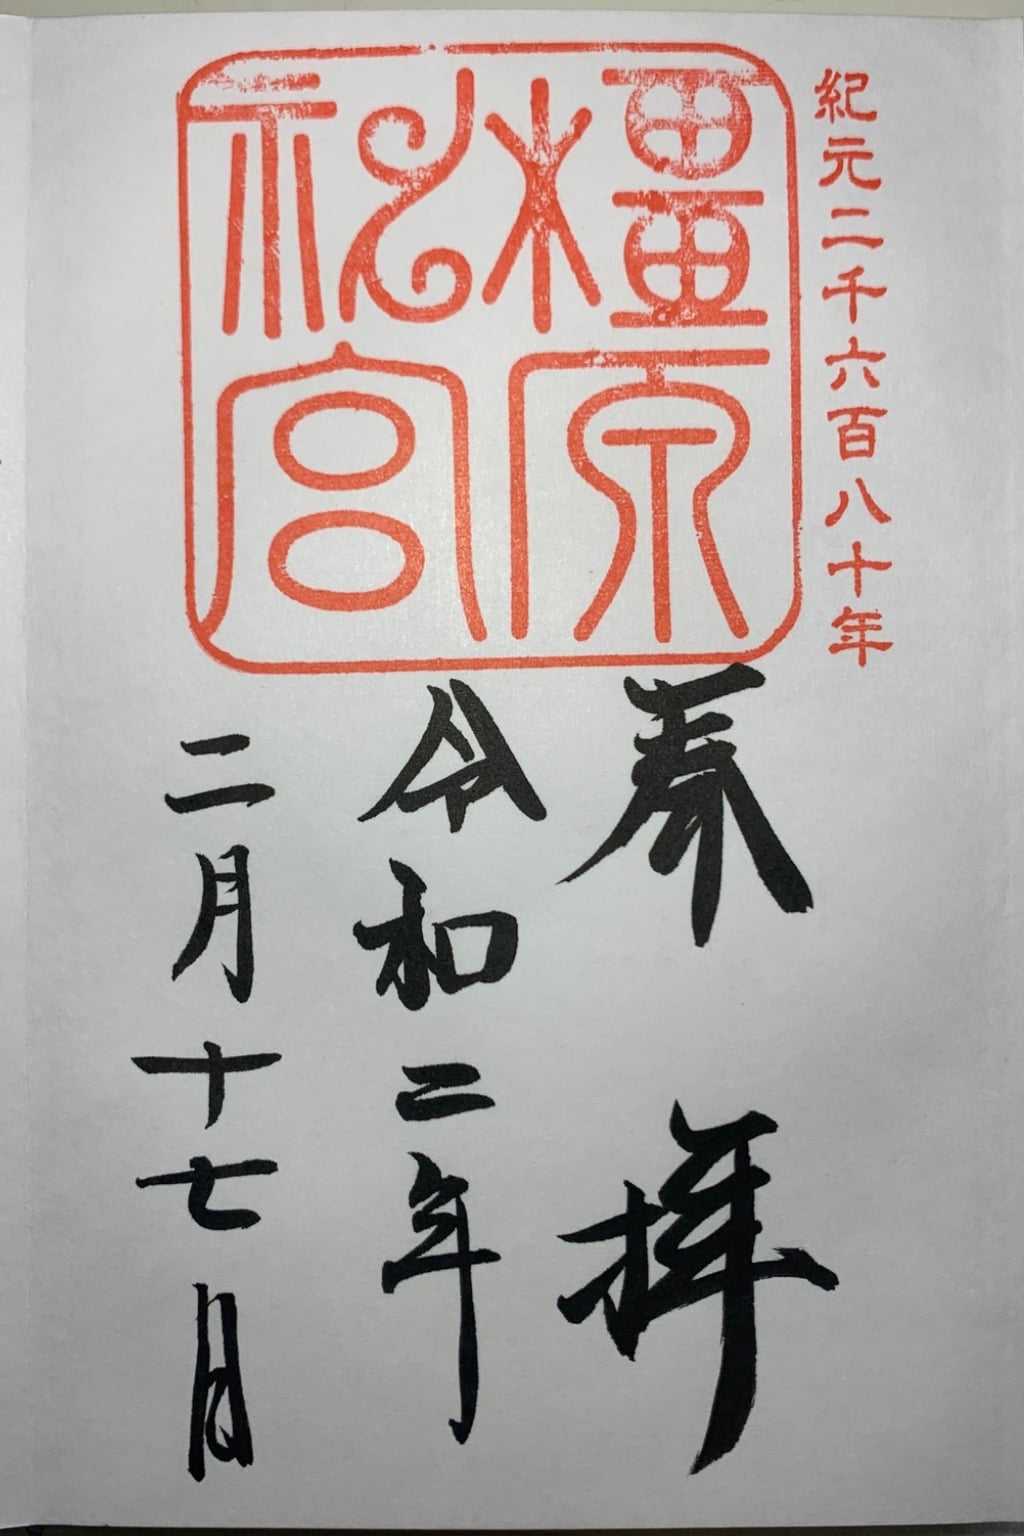 紀元二千六百八十年
橿原
神宮
奉拝
令和二年
二月十七日